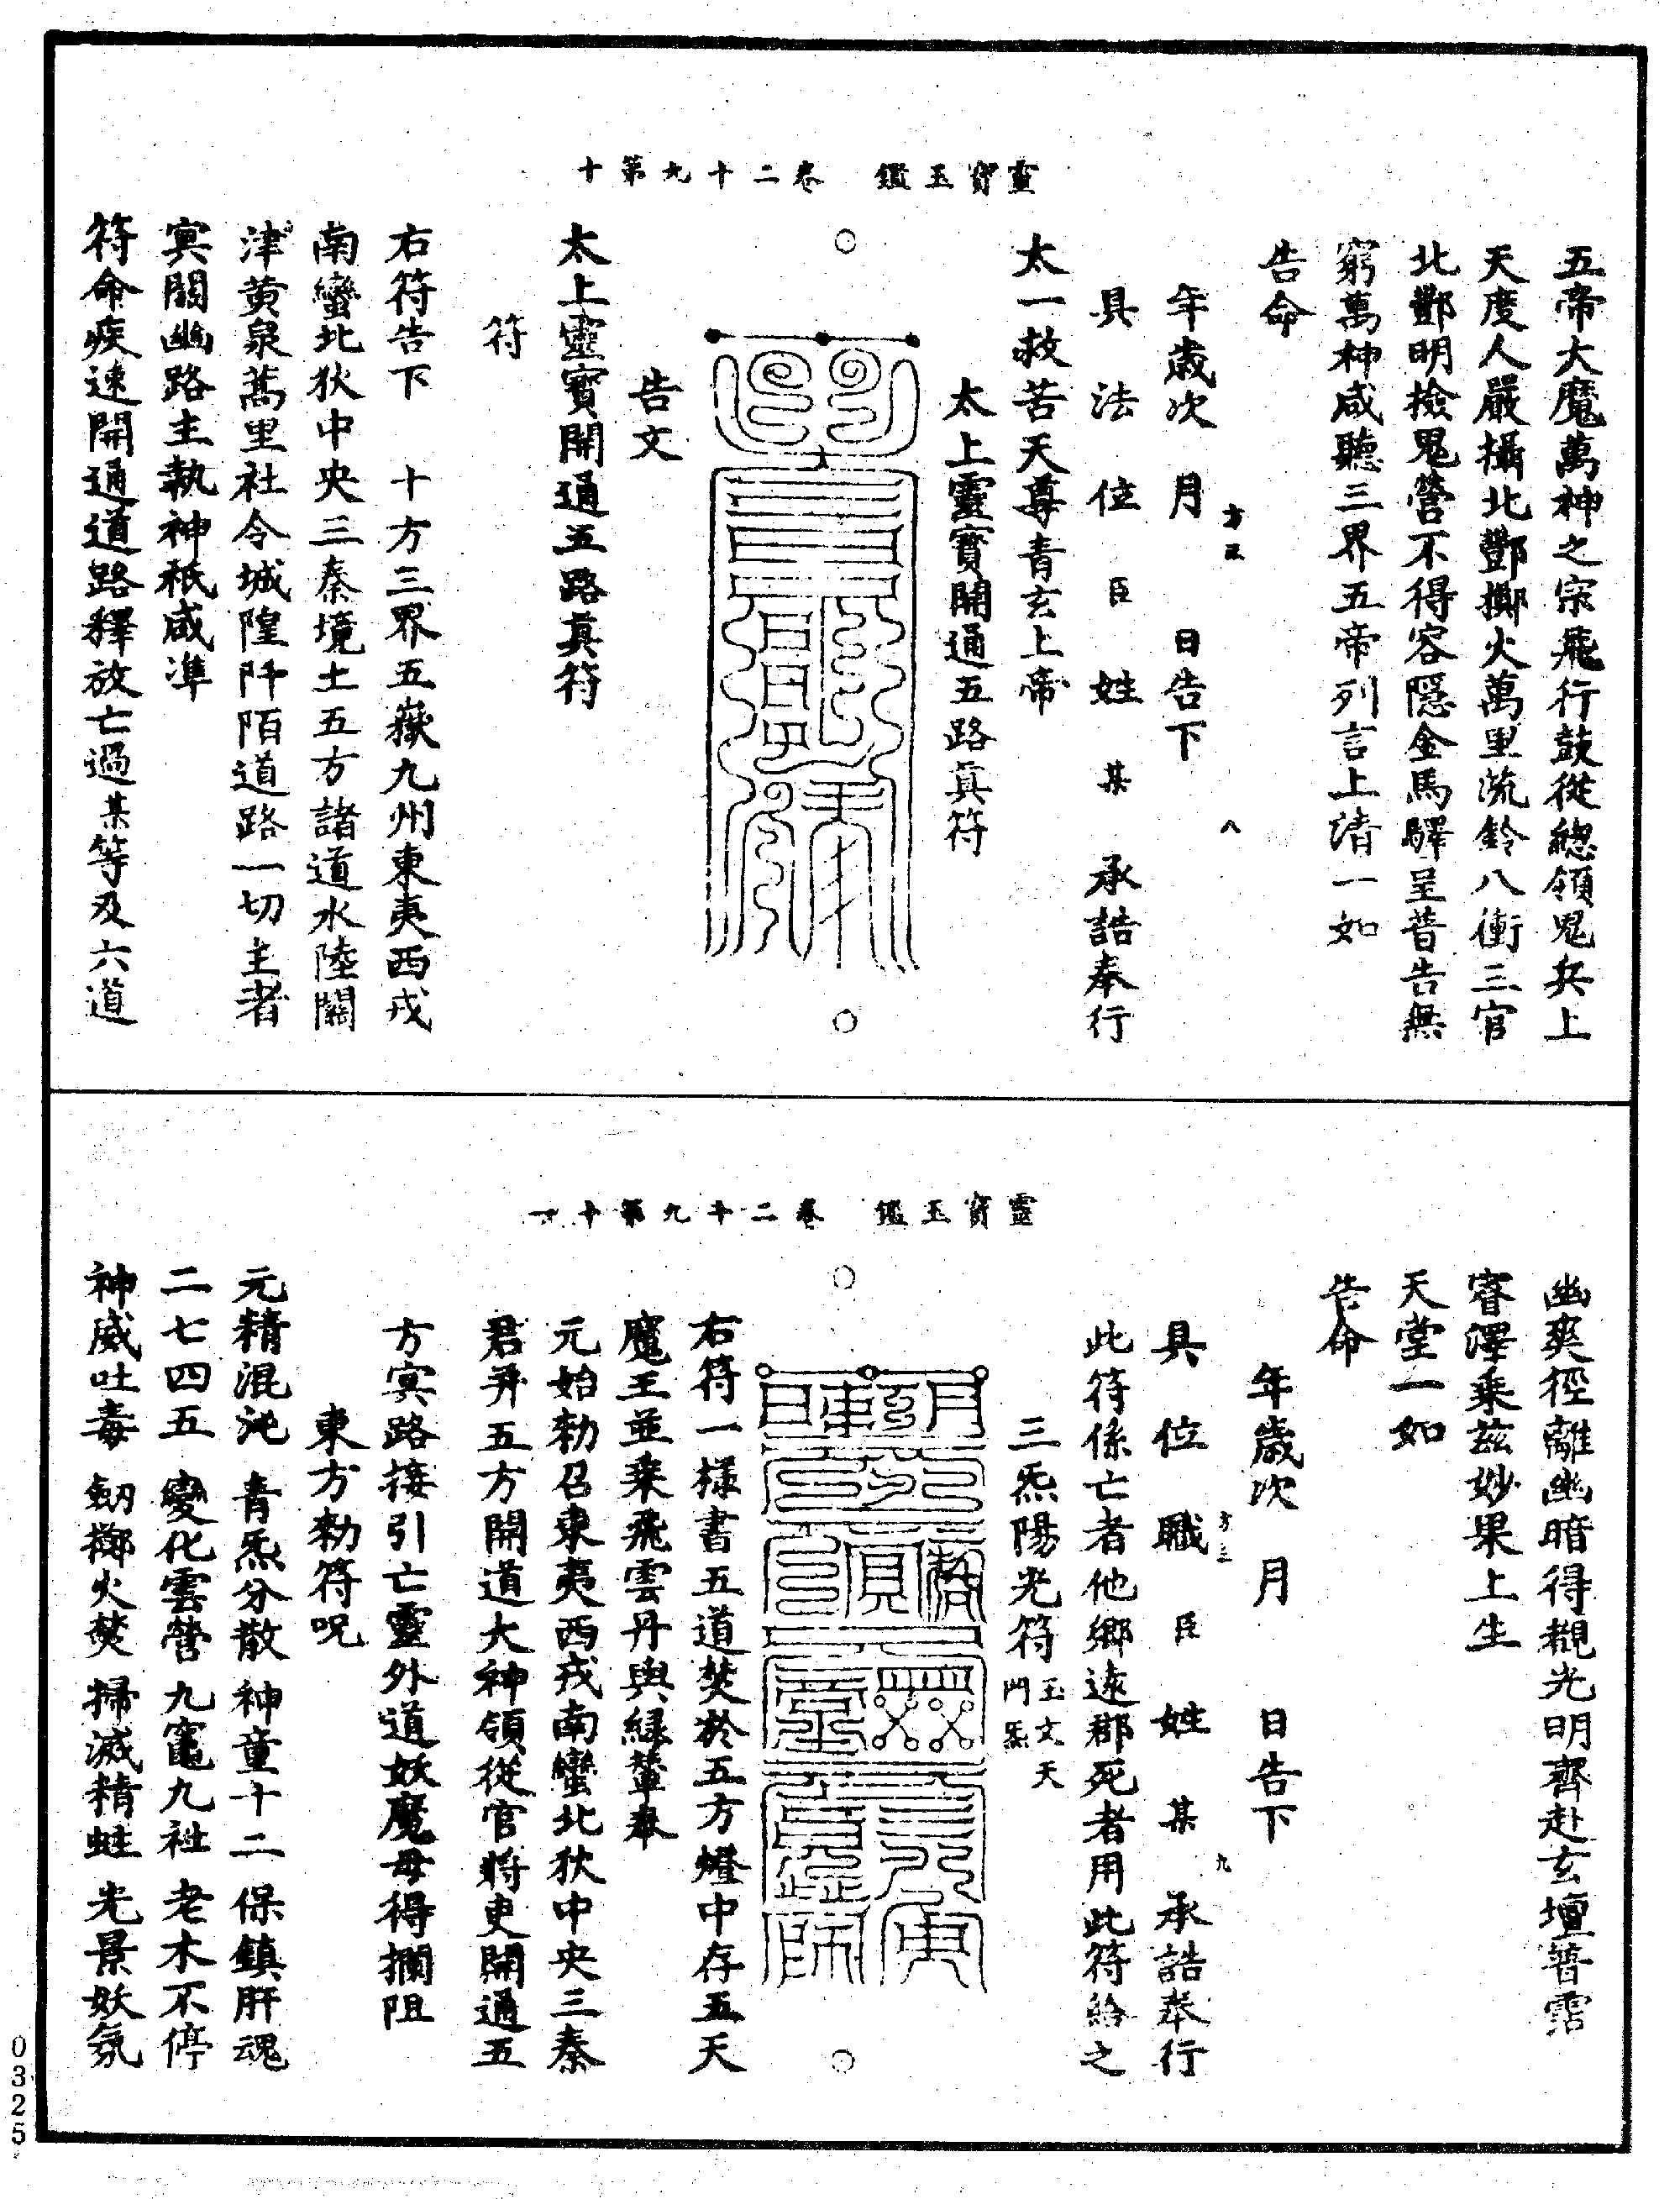 靈寶玉鑑　卷二十九第十
五帝大魔萬神之宗飛行鼓從總領鬼兵上
天度人嚴攝北酆擲火萬里流鈴八衝三官
北酆明撿鬼營不得容隱金馬驛呈普告無
窮萬神咸聽三界五帝列言上清一如
告命
八
年歲次　月　日告下
具　法　位　臣　姓　某　承誥奉行
太一救苦天尊青玄上帝
太上靈寶開通五路真符
告文
太上靈寶開通五路真符
符
右符告下　十方三界五嶽九州東夷西戎
南蠻北狄中央三秦境土五方諸道水陸關
津黃泉蒿里社令城隍阡陌道路一切主者
冥關幽路主執神祇咸準
符命疾速開通道路釋放亡過某等及六道
靈寶玉鑑　卷二十九第十一
幽爽徑離幽暗得覩光明齊赴玄壇普霑
睿澤乘茲妙果上生
天堂一如
告命
年歲次　月　日告下
九
具　位　職　臣　姓　某　承誥奉行
此符係亡者他鄉遠郡死者用此符給之
三炁陽光符玉文天門炁
右符一樣書五道焚於五方燈中存五天
魔王並乘飛雲丹輿綠輦奉
元始勑召東夷西戎南蠻北狄中央三秦
君并五方開道大神領從官將吏開通五
方冥路接引亡靈外道妖魔毋得攔阻
東方勑符呪
元精混沌　青炁分散　神童十二　保鎮肝魂
二七四五　變化雲營　九竈九社　老木不停
神威吐毒　劒擲火焚　掃滅精蛙　光景妖氛
0325